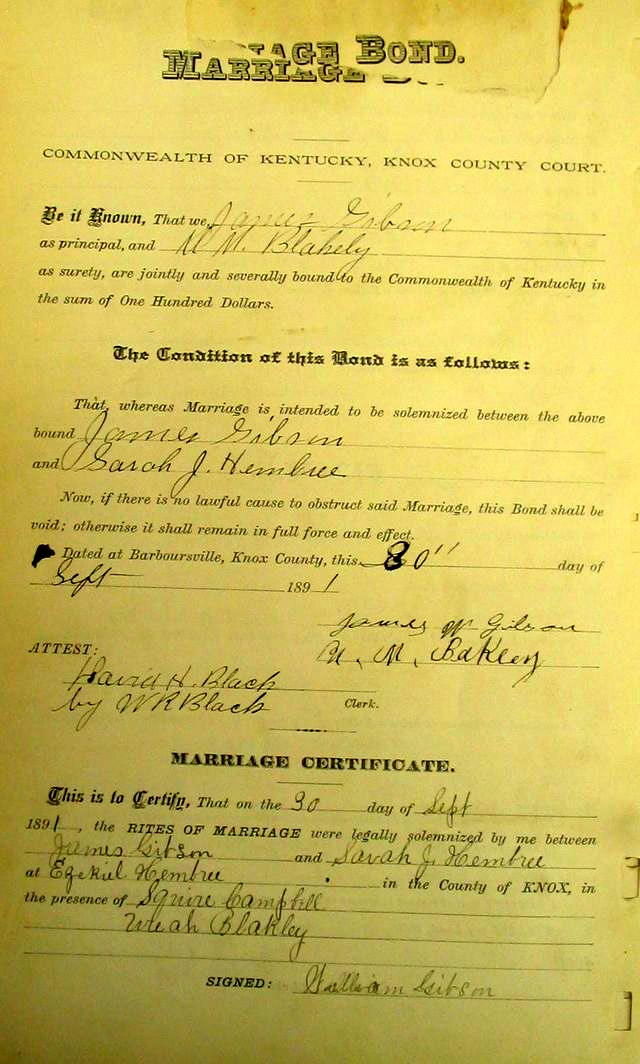 MARRIAGE BOND.
COMMONWEALTH OF KENTUCKY, KNOX COUNTY COURT.
Be it Known, That we, James Gibson
as principal, and M. Blakely
as surety, are jointly and severally bound to the Commonwealth of Kentucky in
the sum of One Hundred Dollars.
The Condition of this Bond is as follows:
That, whereas Marriage is intended to be solemnized between the above
bound James Gibson
and Sarah J. Hembree
Now, if there is no lawful cause to obstruct said Marriage, this Bond shall be
void; otherwise it shall remain in full force and effect.
Dated at Barboursville, Knox County, this 30" day of
Sept 1891
James W Gibson
ATTEST: M. Bakley
David H. Black
by W R Black Clerk.
MARRIAGE CERTIFICATE.
This is to Certify, That on the 30 day of Sept
1891, the RITES OF MARRIAGE were legally solemnized by me between
James Gibson and Sarah J. Hembree
at Ezekiel Hembree in the County of KNOX, in
the presence of Squire Campbell
Blakley
SIGNED: William Gibson